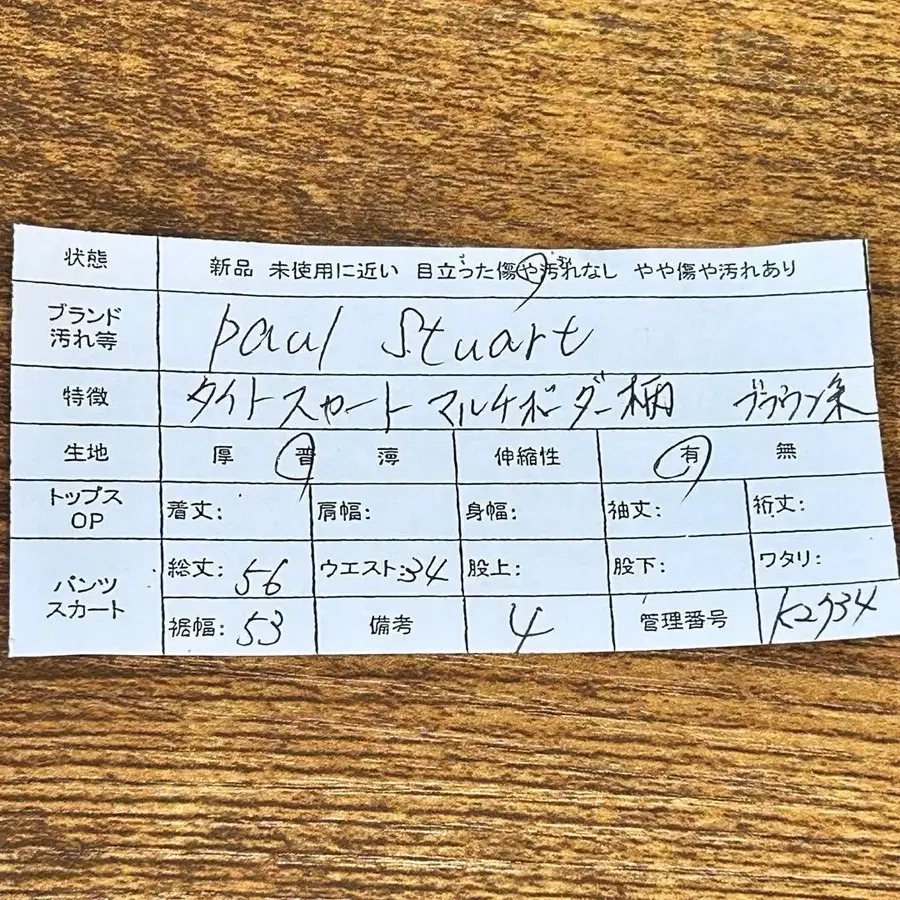 状態 新品 未使用に近い 目立った傷や汚れなし やや傷や汚れあり
ブランド 汚れ等 Paul Stuart
特徴 タイトスカート マルチボーダー柄 ブラウン系
生地 厚 普 薄 伸縮性 有 無
トップス OP 着丈: 肩幅: 身幅: 袖丈: 裄丈:
パンツ スカート 総丈: 56 ウエスト: 34 股上: 股下: ワタリ:
裾幅: 53 備考 4 管理番号 K2734